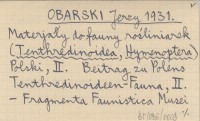 OBARSKI Jerzy 1931.
Materjały do fauny rośliniarek
(Tenthredinoidea, Hymenoptera)
Polski, II. Beitrag zu Polens
Tenthredinoideen-Fauna, II.
- Fragmenta Faunistica Musei